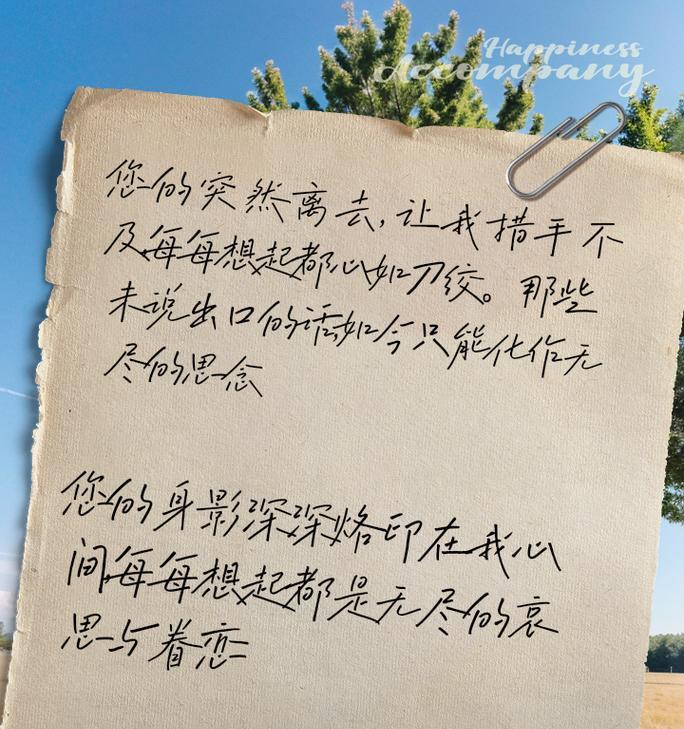 Happiness
Accompany
您的突然离去,让我措手不
及每每想起都心如刀绞。那些
未说出口的话如今只能化作无
尽的思念
您的身影深深烙印在我心
间,每每想起都是无尽的哀
思与眷恋